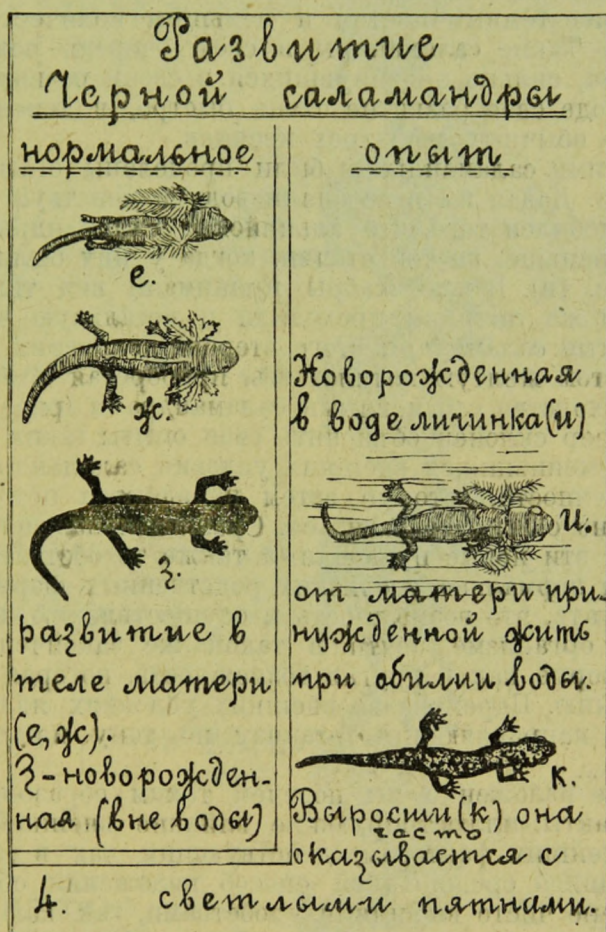 Развитие
Черной саламандры
нормальное
е.
ж.
з.
развитие в
теле матери
(е, ж).
З-новорожден-
ная (вне воды)
опыт
Новорожденная
в воде личинка (и)
и.
от матери при-
нужденной жить
при обилии воды.
к.
Выросши (к) она
часто
оказывается с
светлыми пятнами.
4.